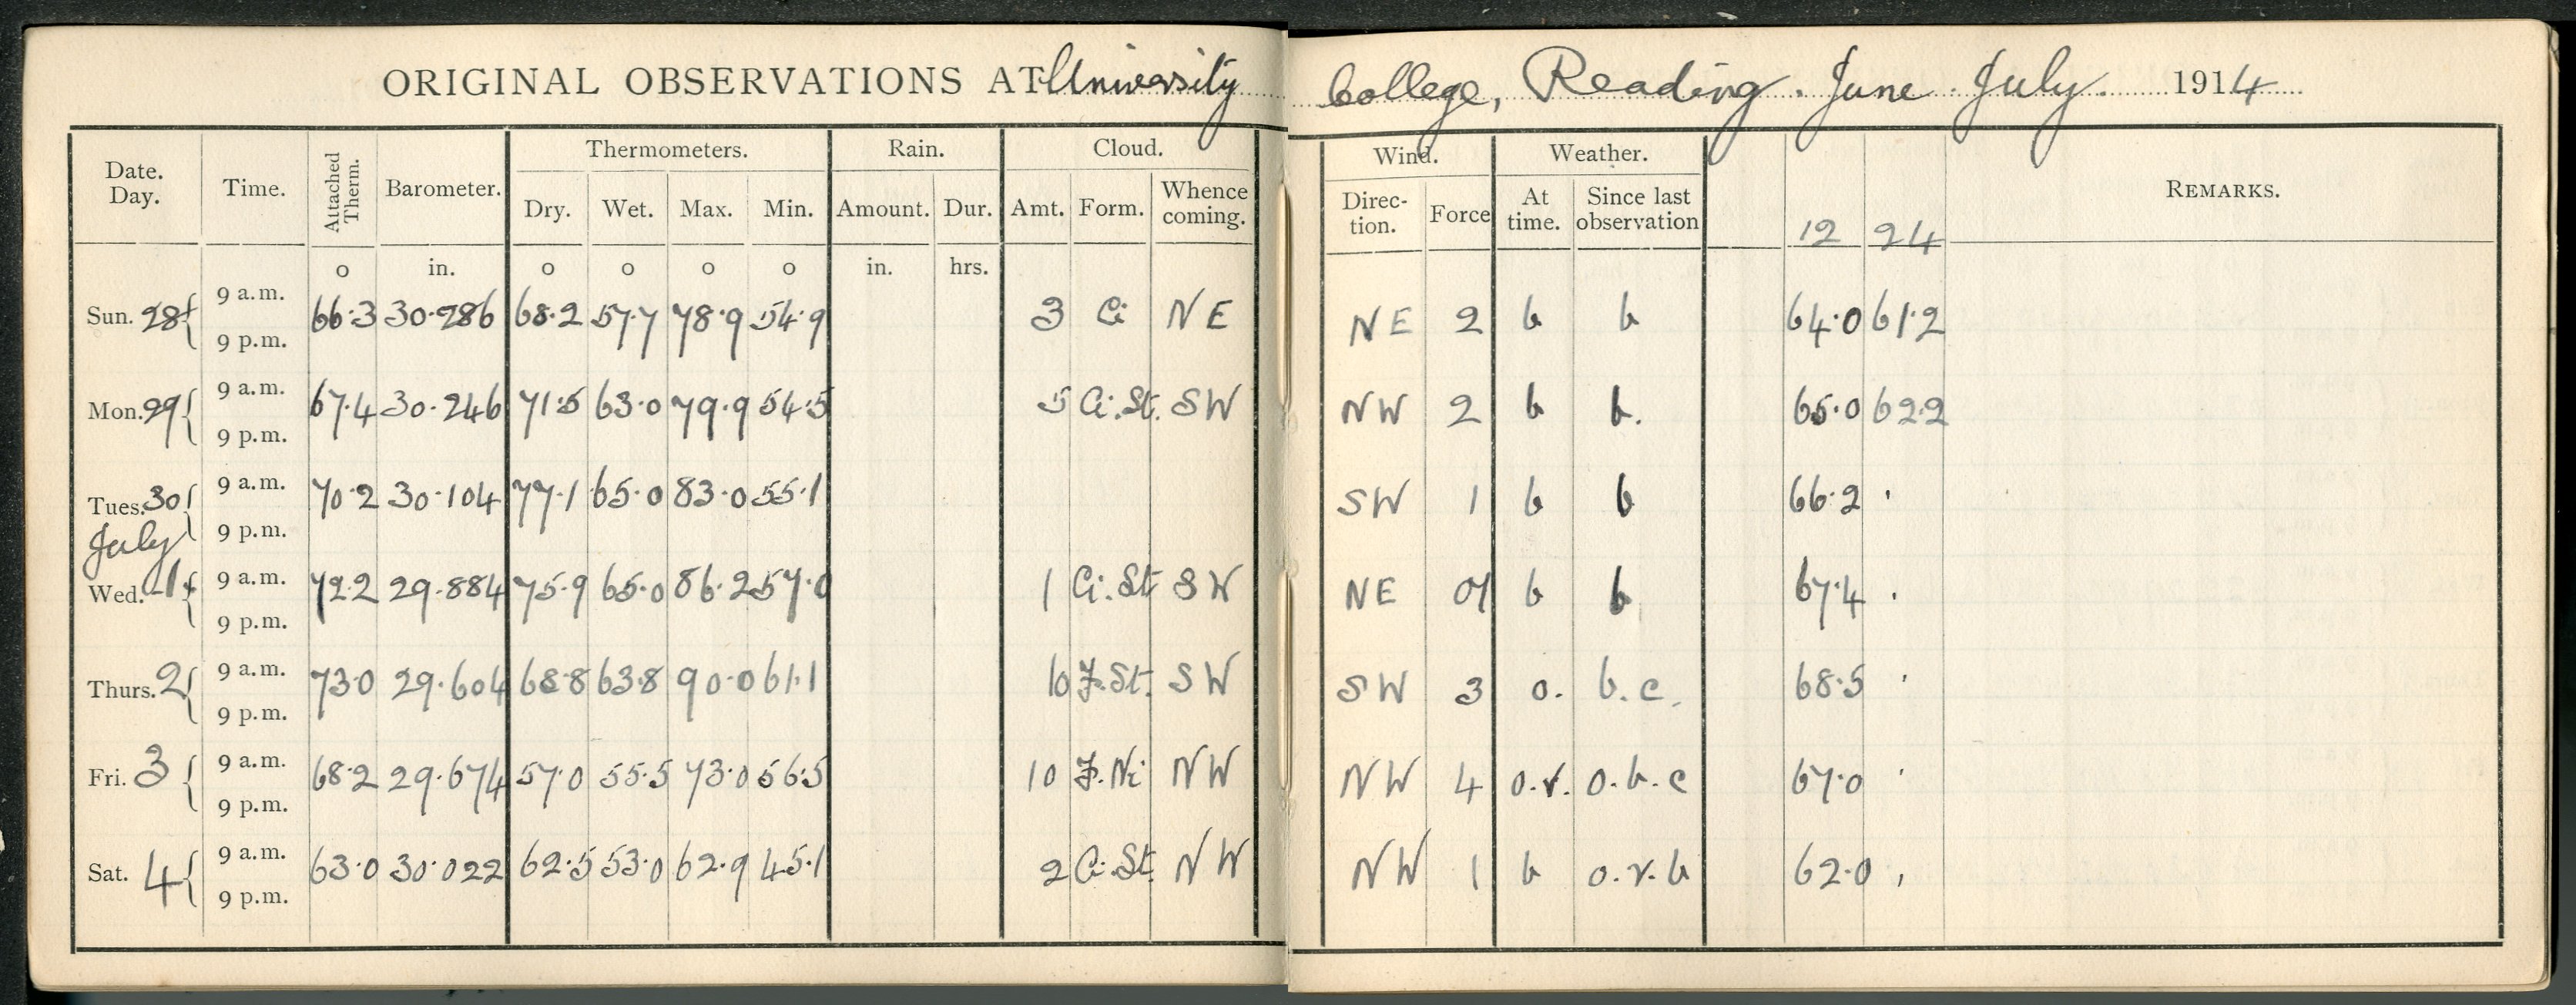 ORIGINAL OBSERVATIONS AT University College, Reading. June. July. 1914
Date. Day. Time. Attached Therm. Barometer. Thermometers. Rain. Cloud. Wind. Weather. REMARKS.
Dry. Wet. Max. Min. Amount. Dur. Amt. Form. Whence coming. Direc- tion. Force At time. Since last observation 12 24
o in. o o o o in. hrs.
Sun. 28 9 a.m. 66.3 30.286 68.2 57.7 78.9 54.9 3 Ci NE NE 2 b b 64.0 61.2
9 p.m.
Mon. 29 9 a.m. 67.4 30.246 71.5 63.0 79.9 54.5 5 Ci.St. SW NW 2 b b. 65.0 62.2
9 p.m.
Tues. 30 9 a.m. 70.2 30.104 77.1 65.0 83.0 55.1 SW 1 b b 66.2
9 p.m.
July
Wed. 1 9 a.m. 72.2 29.884 75.9 65.0 86.2 57.0 1 Ci.St SW NE b b 67.4
9 p.m.
Thurs. 2 9 a.m. 73.0 29.604 68.8 63.8 90.0 61.1 10 F.St. SW SW 3 o. b.c. 68.5
9 p.m.
Fri. 3 9 a.m. 68.2 29.674 57.0 55.5 73.0 56.5 10 F.Ni NW NW 4 o.r. o.b.c 67.0
9 p.m.
Sat. 4 9 a.m. 63.0 30.022 62.5 53.0 62.9 45.1 2 Ci.St. NW NW 1 b o.r.b 62.0
9 p.m.